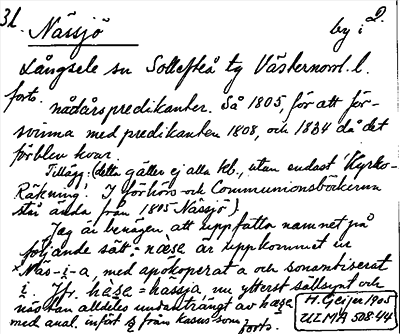 31. Nässjö by i 2.
Långsele sn Sollefteå tg Västernorrl. l.
forts. nådårspredikanter. Så 1805, för att för-
svinna med predikanten 1808, och 1834 då det
förblev kvar.
Tillägg (detta gäller ej alla kb., utan endast 'Kyrko-
Räkning'. I förhörs och Communionsböckerna
står ända från 1805 Nässjö).
Jag är benägen att uppfatta namnet på
följande sätt: næsa är uppkommet ur
*Näs-i-a, med apokoperat a och sonantiserat
i. Jfr. hæsa = hässja nu ytterst sällsynt och
nästan alldeles undanträngt av hæsa
med anal. infört från kasus som forts.
H. Geijer 1905
ULMA 508:44